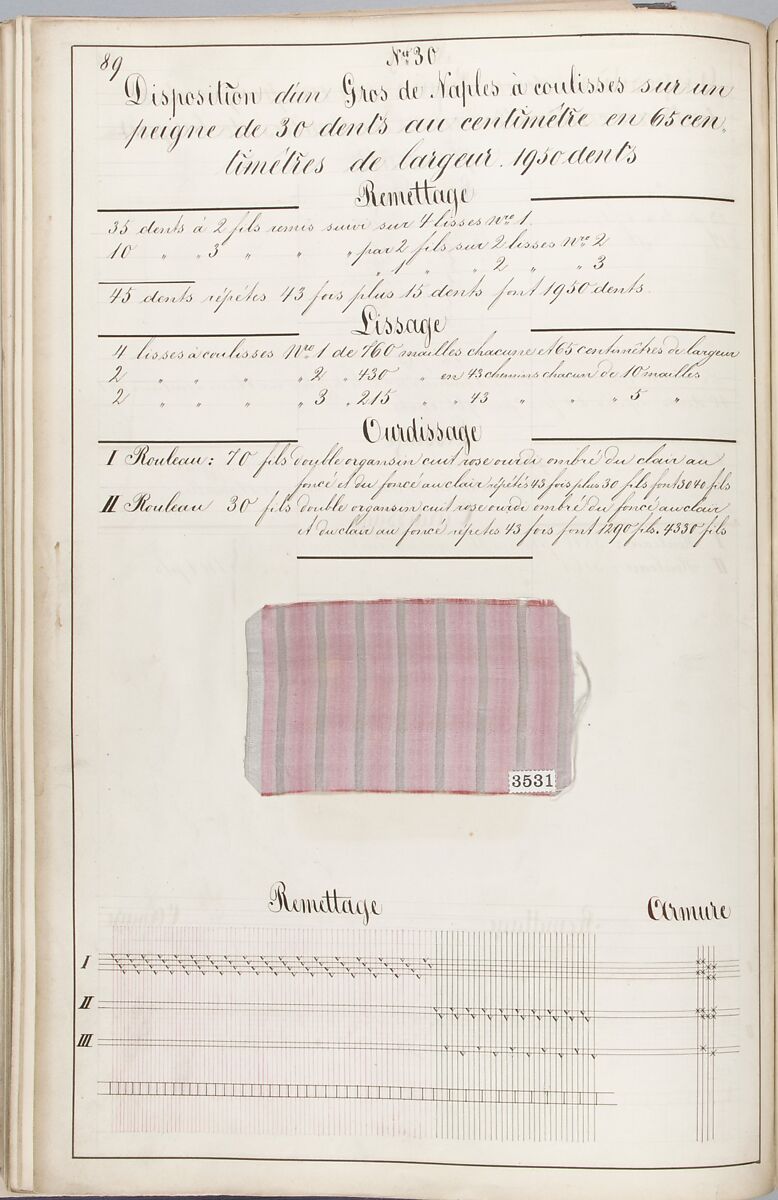 89
Nro 30
Disposition d'un Gros de Naples à coulisses sur un
peigne de 30 dents au centimètre en 65 cen,
timètres de largeur. 1950 dents
Remettage
35 dents à 2 fils remis suivi sur 4 lisses Nro 1.
10 " " 3 " " " par 2 fils sur 2 lisses Nro 2
" 1 " " 2 " " 3
45 dents répétés 43 fois plus 15 dents font 1950 dents.
Lissage
4 lisses à coulisses Nro 1 de 760 mailles chacune et 65 centimètres de largeur
2 " " " " 2 " 430 " en 43 chemins chacun de 10 mailles
2 " " " " 3 " 215 " " 43 " " " 5 "
Ourdissage
I Rouleau: 70 fils double organsin cuit rose ourdi ombré du clair au
foncé et du foncé au clair répétés 43 fois plus 30 fils font 3040 fils
II Rouleau 30 fils double organsin cuit rose ourdi ombré du foncé au clair
et du clair au foncé répetés 43 fois font 1290 fils. 4330 fils
3531
Remettage Armure
I
II
III